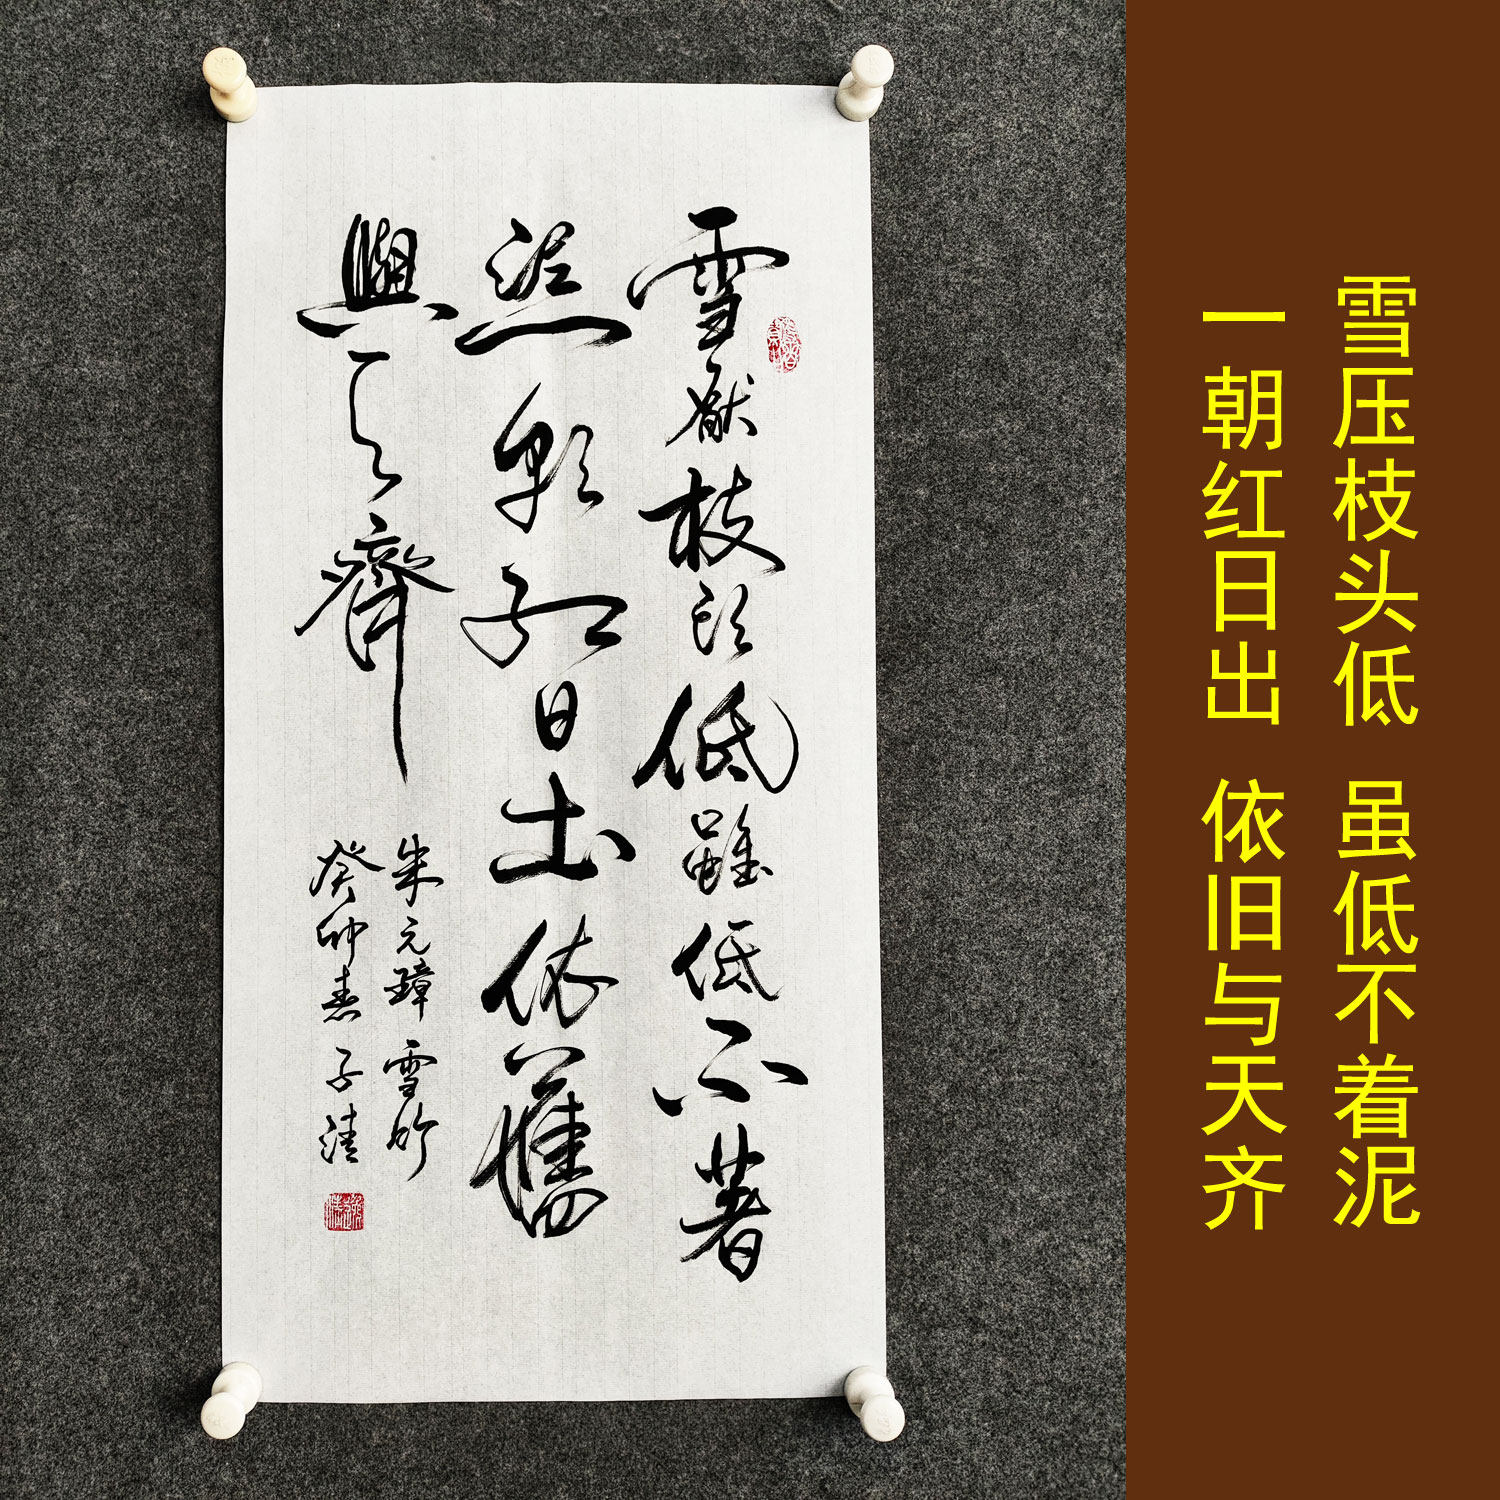 雪厭枝頭低雖低不著
泥一朝紅日出依舊
與天齊
朱元璋 雪竹
癸卯春 子清
雪压枝头低 虽低不着泥
一朝红日出 依旧与天齐